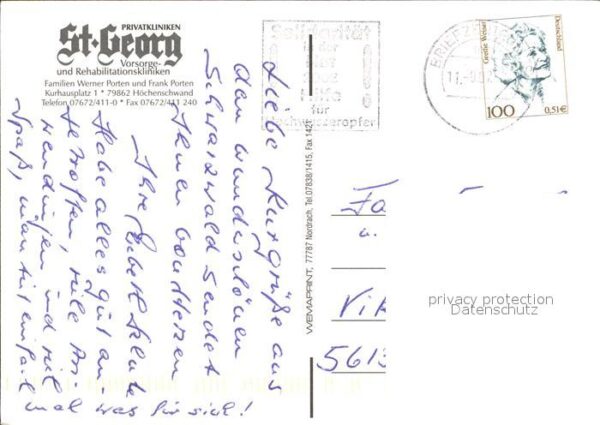 PRIVATKLINIKEN
St. Georg
Vorsorge-
und Rehabilitationskliniken
Familien Werner Porten und Frank Porten
Kurhausplatz 1 * 79862 Höchenschwand
Telefon 07672/411-0 * Fax 07672/411 240
Solidarität
in der
Not
Hilfe
für
Hochwasseropfer
BRIEFZENTRUM
Grethe Weiser
Deutschland
100
0,51€
Liebe Kurgrüße aus
dem wunderschönen
Schwarzwald sendet
Ihnen von Herzen
Ihre
Habe alles gut an-
getroffen, viele An-
wendungen und viel
Spaß, man tut einfach
mal was für sich!
WEMAPRINT, 77787 Nordrach, Tel. 07838/1415, Fax 1421
Fa
u.
Vik
5613
privacy protection
Datenschutz